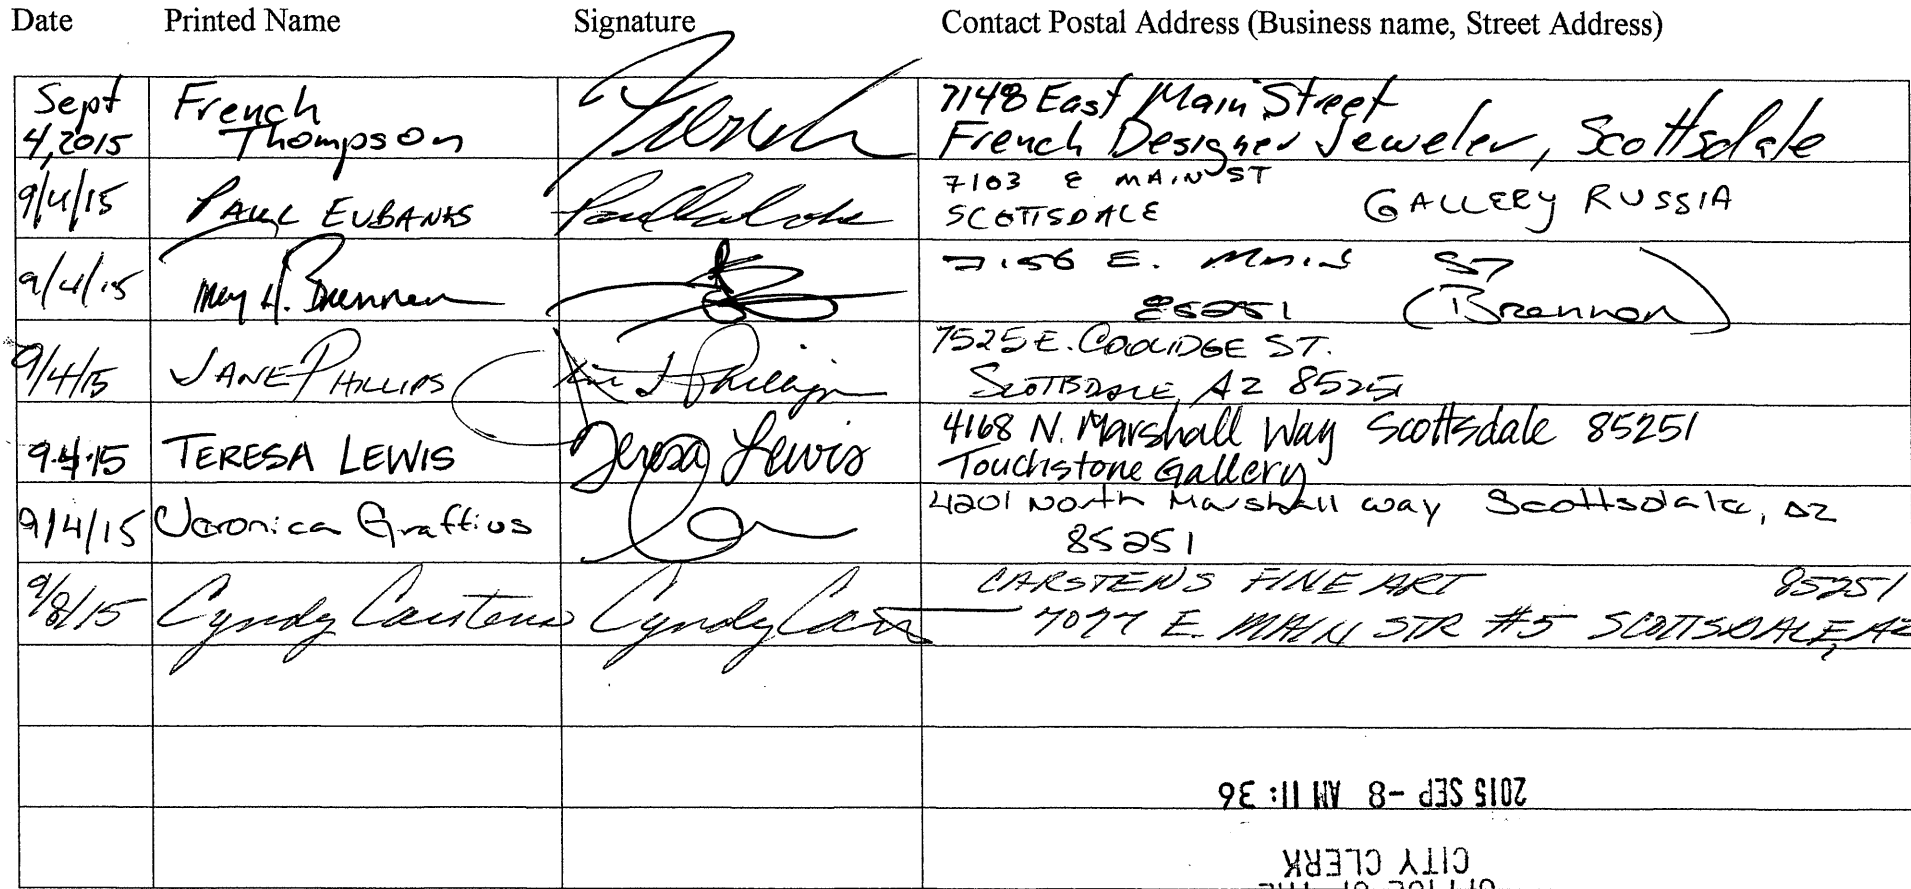 Date Printed Name Signature Contact Postal Address (Business name, Street Address)
Sept French 7148 East Main Street
4,2015 Thompson French French Designer Jeweler, Scottsdale
9/4/15 PAUL EUBANKS 7103 E MAIN ST
SCOTTSDALE GALLERY RUSSIA
9/4/15 H. Brennan 7156 E. Main ST
85251 (Brennan)
9/4/15 JANE PHILLIPS Phillips 7525 E. COOLIDGE ST.
SCOTTSDALE, AZ 85251
9.4.15 TERESA LEWIS Teresa Lewis 4168 N. Marshall Way Scottsdale 85251
Touchstone Gallery
9/4/15 Veronica Graffius 4201 North Marshall way Scottsdale, AZ
85251
9/8/15 Cyndy Carstens Cyndy Cars CARSTENS FINE ART 85251
7077 E. MAIN STR #5 SCOTTSDALE, AZ
2015 SEP -8 AM 11: 36
CITY CLERK
OFFICE OF THE